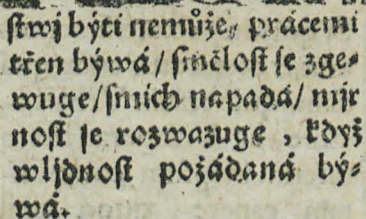 stwj býti nemůže, prácemi
třen býwá / smělost se zge⸗
wuge / smich napadá / mjr
nost se rozwazuge , když
wljdnost požádaná bý⸗
wá.